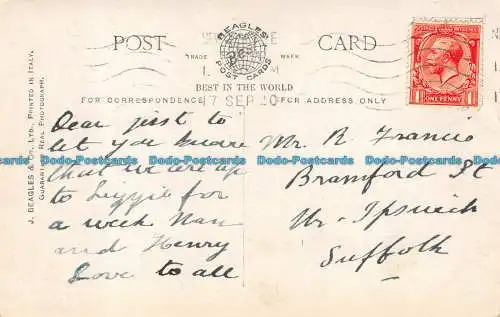 POST CARD
BEAGLES
POST CARDS
TRADE MARK
BEST IN THE WORLD
FOR CORRESPONDENCE
FOR ADDRESS ONLY
17 SEP 20
ONE PENNY
J. BEAGLES & CO., LTD., PRINTED IN ITALY.
GUARANTEED REAL PHOTOGRAPH.
Dear just to
let you know
that we are up
to Lizzie for
a week Nan
and Henry
Love to all
Mr R Francis
Bramford St
Nr. Ipswich
Suffolk
Ido-Postcards Ido-Postcards Ido-Postcards Ido-Postcards